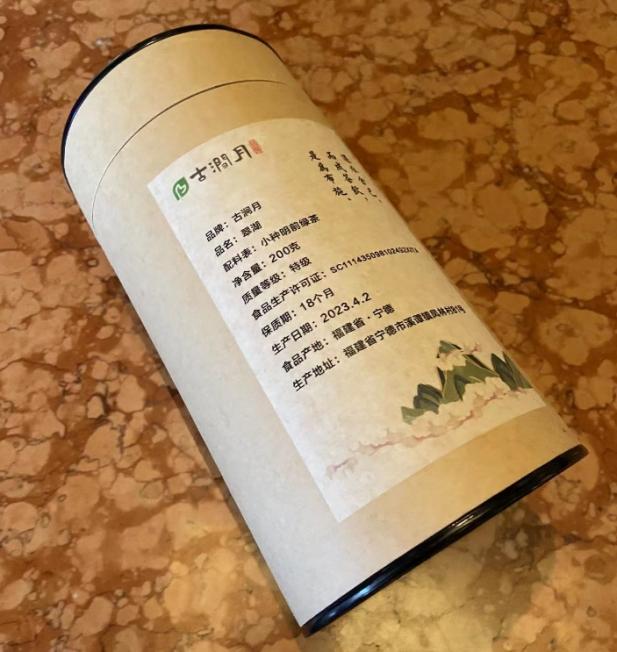 古涧月
品牌：古涧月
品名：翠湖
配料表：小种明前绿茶
净含量：200克
质量等级：特级
食品生产许可证：
保质期：18个月
生产日期：2023.4.2
食品产地：福建省·宁德
生产地址：福建省宁德市溪潭镇凤林村
是為布施